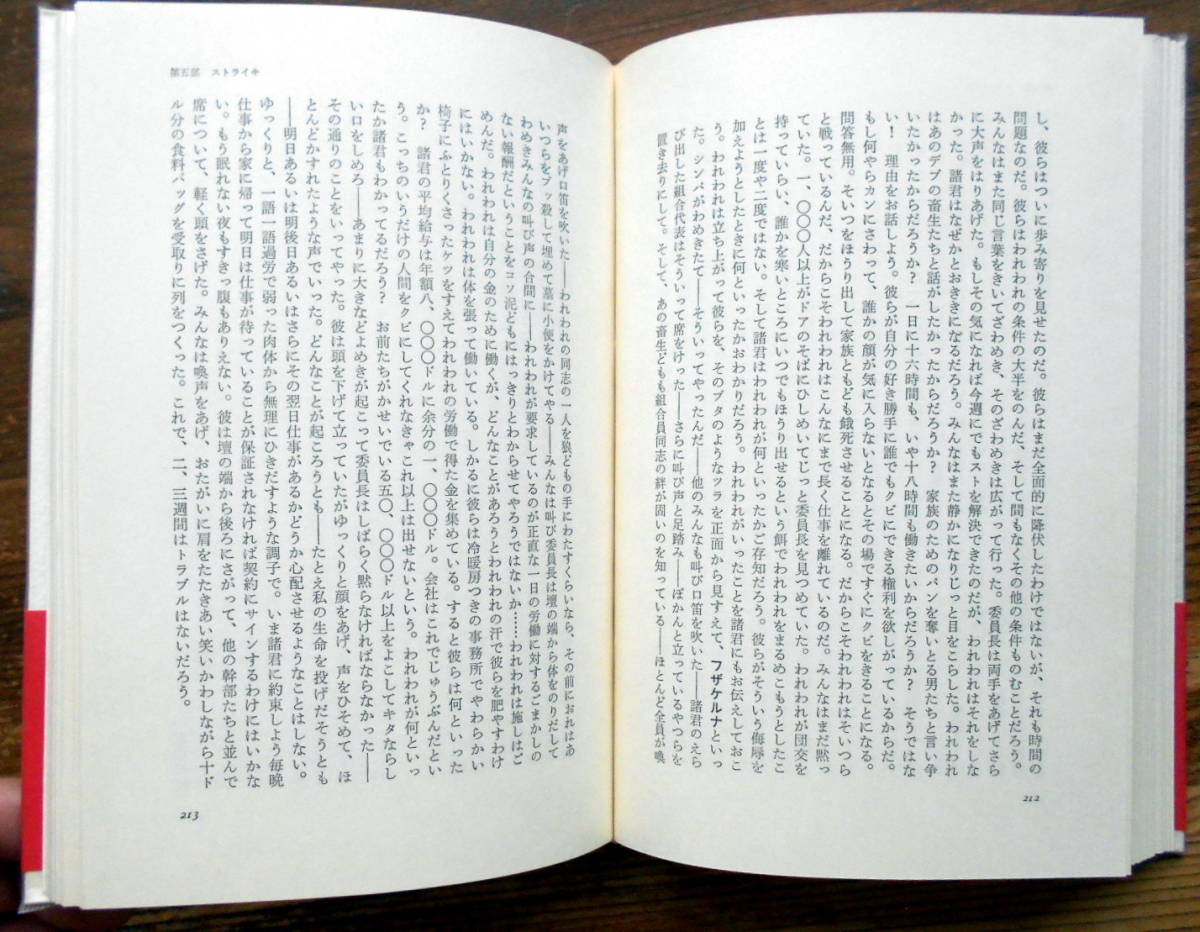 し、彼らはついに歩み寄りを見せたのだ。彼らはまだ全面的に降伏したわけではないが、それも時間の
問題なのだ。彼らはわれわれの条件の大半をのんだ、そして間もなくその他の条件ものむことだろう。
みんなはまた同じ言葉をきいてざわめき、そのざわめきは広がって行った。委員長は両手をあげてさら
に大声をはりあげた。もしその気になれば今週にでもストを解決できたのだが、われわれはそれをしな
かった。諸君はなぜかとおききになるだろう。みんなはまた静かになりじっと目をこらした。われわれ
はあのデブの畜生たちと話がしたかったからだろうか? 家族のためのパンを奪いとる男たちと言い争
いたかったからだろうか? 一日に十六時間も、いや十八時間も働きたいからだろうか? そうではな
い! 理由をお話しよう。彼らが自分の好き勝手に誰でもクビにできる権利を欲しがっているからだ。
もし何やらカンにさわって、誰かの顔が気に入らないとなるとその場ですぐにクビをきることになる。
問答無用。そいつをほうり出して家族ともども餓死させることになる。だからこそわれわれはそいつら
と戦っているんだ、だからこそわれわれはこんなにまで長く仕事を離れているのだ。みんなはまだ黙っ
ていた。一、〇〇〇人以上がドアのそばにひしめいてじっと委員長を見つめていた。われわれが団交を
持っていらい、誰かを寒いところにいつでもほうり出せるという餌でわれわれをまるめこもうとしたこ
とは一度や二度ではない。そして諸君はわれわれが何といったかご存知だろう。彼らがそういう侮辱を
加えようとしたときに何といったかおわかりだろう。われわれがいったことを諸君にもお伝えしておこ
う。われわれは立ち上がって彼らを、そのブタのようなツラを正面から見すえて、フザケルナといっ
た。シンバがわめきたて——そういってやったんだ——他のみんなも叫び口笛を吹いた——諸君のえら
び出した組合代表はそういって席をけった——さらに叫び声と足踏み——ぽかんと立っているやつらを
置き去りにして。そして、あの畜生どもも組合員同志の絆が固いのを知っている——ほとんど全員が喚
212
第五部 ストライキ
声をあげ口笛を吹いた——われわれの同志の一人を狼どもの手にわたすくらいなら、その前におれはあ
いつらをブッ殺して埋めて墓に小便をかけてやる——みんなは叫び委員長は壇の端から体をのりだして
わめきみんなの叫び声の合間に——われわれが要求しているのが正直な一日の労働に対するごまかしの
ない報酬だということをコソ泥どもにはっきりとわからせてやろうではないか……われわれは施しはご
めんだ。われわれは自分の金のために働くが、どんなことがあろうとわれわれの汗で彼らを肥やすわけ
にはいかない。われわれは体を張って働いている。しかるに彼らは冷暖房つきの事務所でやわらかい
椅子にふとりくさったケツをすえてわれわれの労働で得た金を集めている。すると彼らは何といった
か? 諸君の平均給与は年額八、〇〇〇ドルに余分の一、〇〇〇ドル。会社はこれでじゅうぶんだとい
う。こっちのいうだけの人間をクビにしてくれなきゃこれ以上は出せないという。われわれが何といっ
たか諸君もわかってるだろう? お前たちがかせいでいる五〇、〇〇〇ドル以上をよこしてキタならし
い口をしめろ——あまりに大きなどよめきが起こって委員長はしばらく黙らなければならなかった——
その通りのことをいってやった。彼は頭を下げて立っていたがゆっくりと顔をあげ、声をひそめて、ほ
とんどかすれたような声でいった。どんなことが起ころうとも——たとえ私の生命を投げだそうとも
——明日あるいは明後日あるいはさらにその翌日仕事があるかどうか心配させるようなことはしない。
ゆっくりと、一語一語過労で弱った肉体から無理にひきだすような調子で。いま諸君に約束しよう毎晩
仕事から家に帰って明日は仕事が待っていることが保証されなければ契約にサインするわけにはいかな
い。もう眠れない夜もすきっ腹もありえない。彼は壇の端から後ろにさがって、他の幹部たちと並んで
席について、軽く頭をさげた。みんなは喚声をあげ、おたがいに肩をたたきあい笑いかわしながら十ド
ル分の食料パックを受取りに列をつくった。これで、二、三週間はトラブルはないだろう。
213